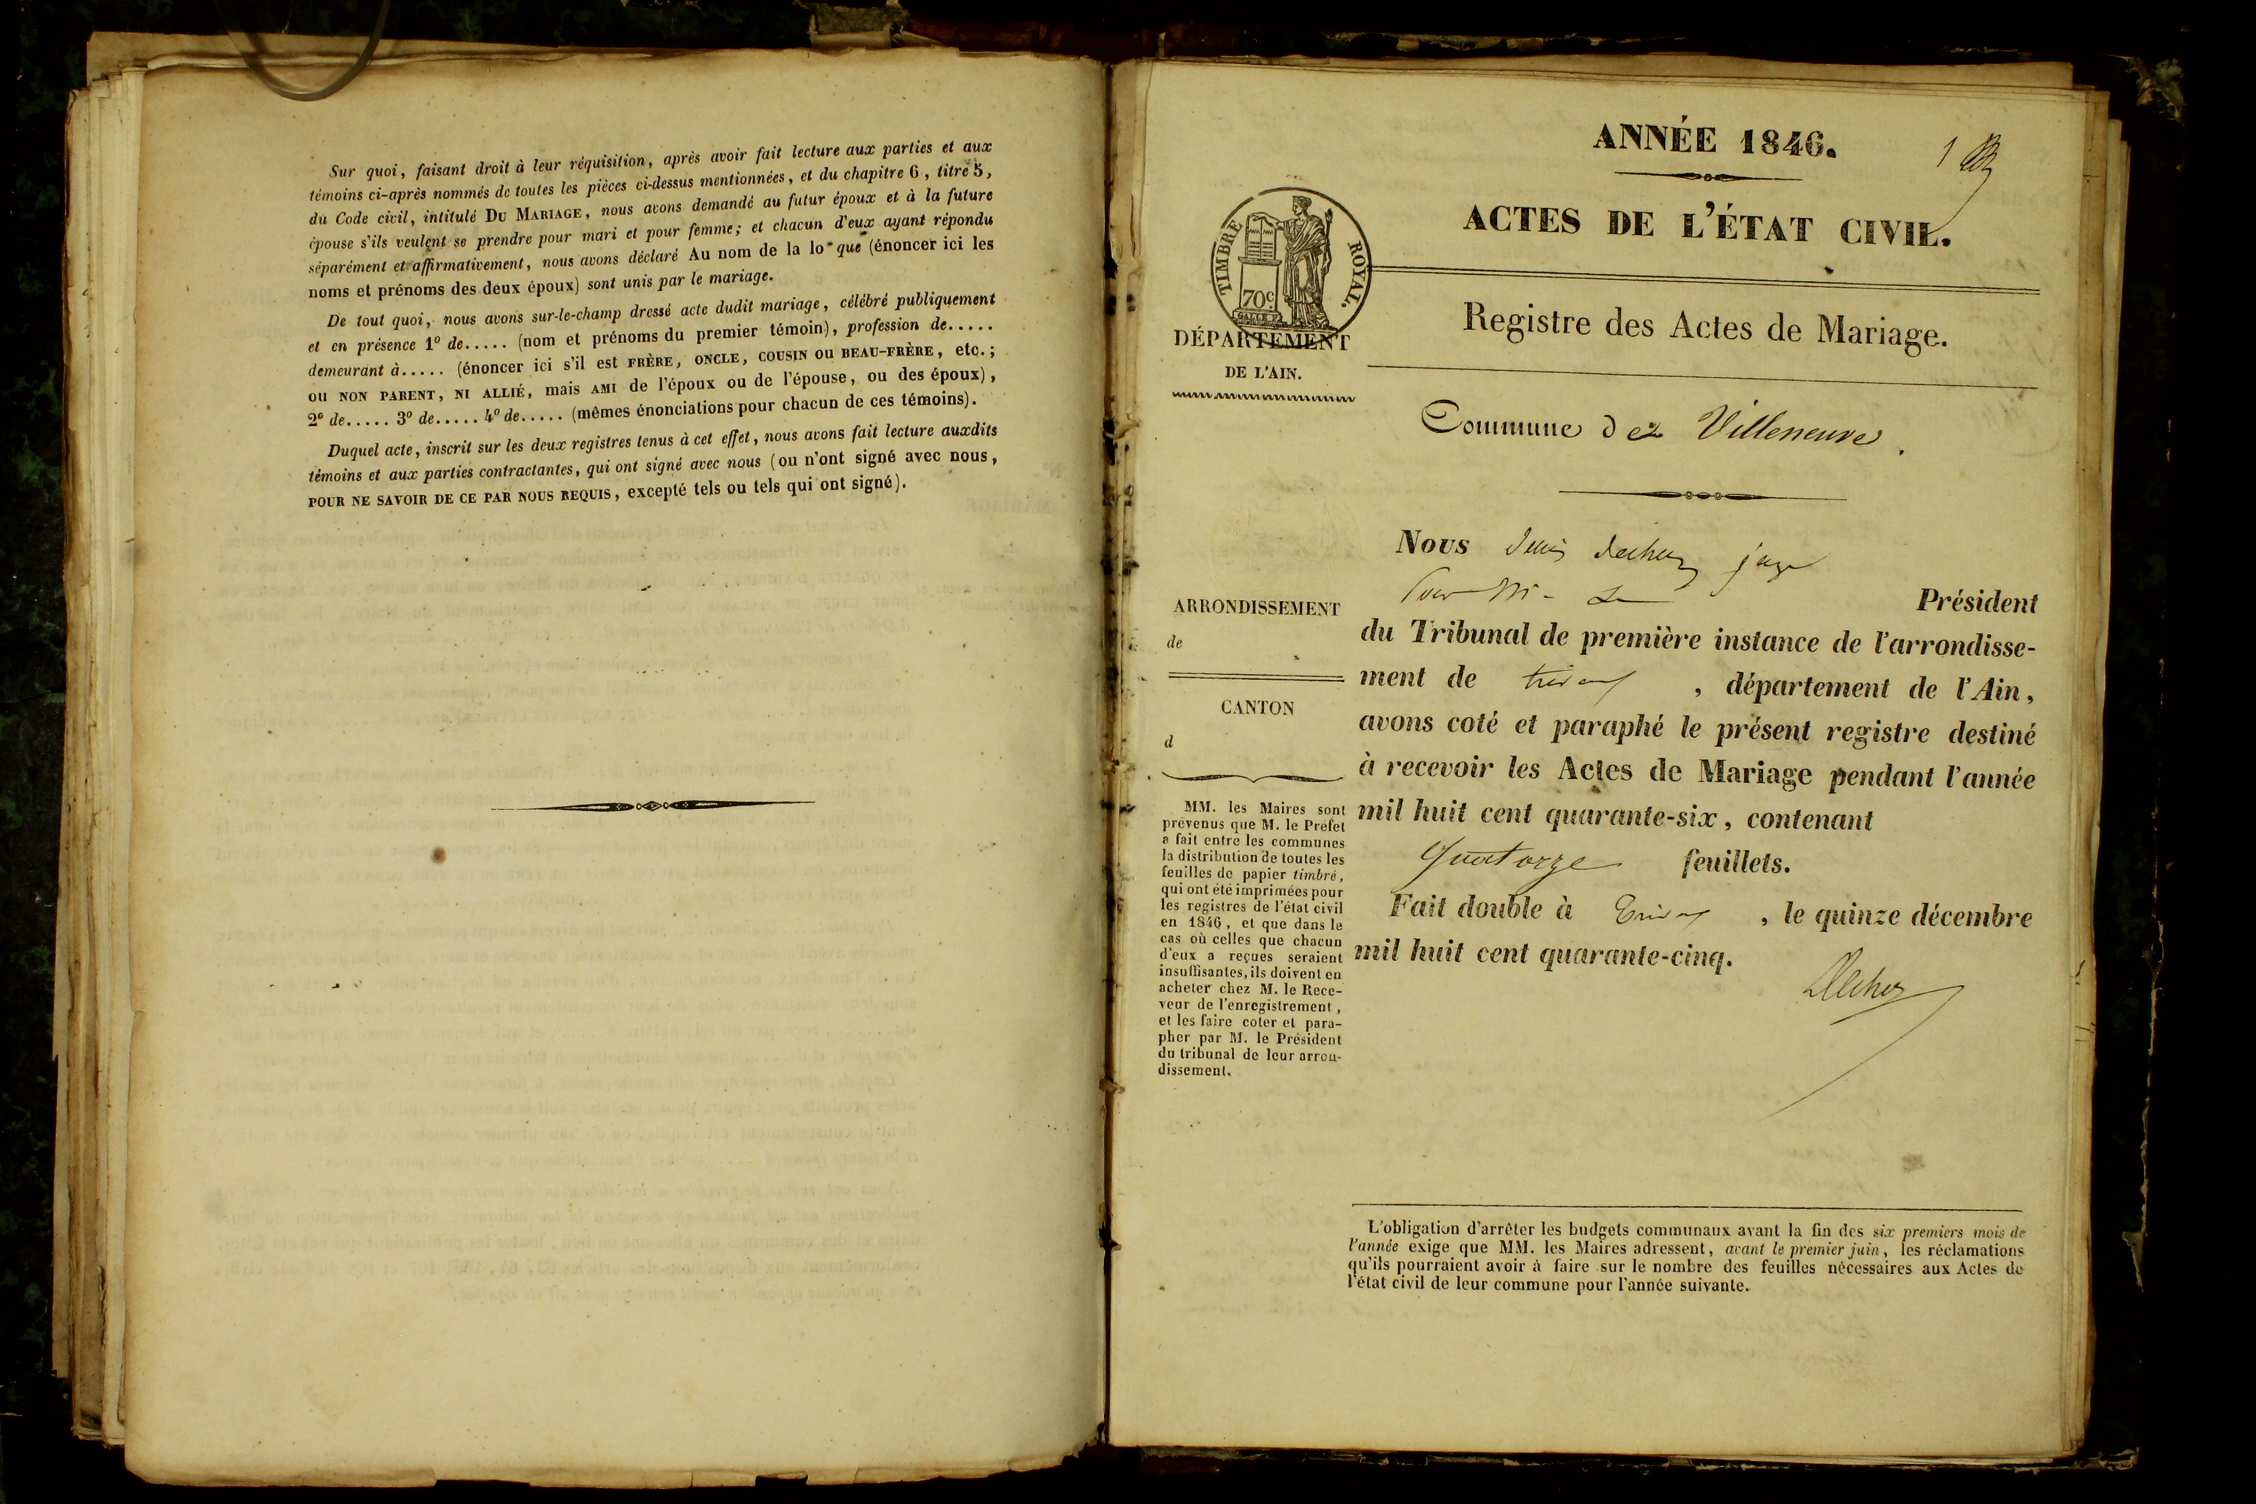 Sur quoi, faisant droit à leur réquisition, après avoir fait lecture aux parties et aux
témoins ci-après nommés de toutes les pièces ci-dessus mentionnées, et du chapitre 6, titre 5,
du Code civil, intitulé DU MARIAGE, nous avons demandé au futur époux et à la future
épouse s'ils veulent se prendre pour mari et pour femme; et chacun d'eux ayant répondu
séparément et affirmativement, nous avons déclaré Au nom de la lo que (énoncer ici les
noms et prénoms des deux époux) sont unis par le mariage.
De tout quoi, nous avons sur-le-champ dressé acte dudit mariage, célébré publiquement
et en présence 1º de..... (nom et prénoms du premier témoin), profession de.....
demeurant à..... (énoncer ici s'il est FRÈRE, ONCLE, COUSIN ou BEAU-FRÈRE, etc.;
ou NON PARENT, NI ALLIÉ, mais AMI de l'époux ou de l'épouse, ou des époux),
2º de..... 3º de..... 4º de..... (mêmes énonciations pour chacun de ces témoins).
Duquel acte, inscrit sur les deux registres tenus à cet effet, nous avons fait lecture auxdits
témoins et aux parties contractantes, qui ont signé avec nous (ou n'ont signé avec nous,
POUR NE SAVOIR DE CE PAR NOUS REQUIS, excepté tels ou tels qui ont signé).
ANNÉE 1846.
1
ACTES DE L'ÉTAT CIVIL.
TIMBRE ROYAL.
70c
DÉPARTEMENT
DE L'AIN.
Registre des Actes de Mariage.
Commune de Villeneuve
Nous juge
Président
du Tribunal de première instance de l'arrondisse-
ment de trévoux, département de l'Ain,
avons coté et paraphé le présent registre destiné
à recevoir les Actes de Mariage pendant l'année
mil huit cent quarante-six, contenant
Quatorze feuillets.
Fait double à Trévoux, le quinze décembre
mil huit cent quarante-cinq.
ARRONDISSEMENT
de
CANTON
d
MM. les Maires sont
prévenus que M. le Préfet
a fait entre les communes
la distribution de toutes les
feuilles de papier timbré,
qui ont été imprimées pour
les registres de l'état civil
en 1846, et que dans le
cas où celles que chacun
d'eux a reçues seraient
insuffisantes, ils doivent en
acheter chez M. le Rece-
veur de l'enregistrement,
et les faire coter et para-
pher par M. le Président
du tribunal de leur arron-
dissement.
L'obligation d'arrêter les budgets communaux avant la fin des six premiers mois de
l'année exige que MM. les Maires adressent, avant le premier juin, les réclamations
qu'ils pourraient avoir à faire sur le nombre des feuilles nécessaires aux Actes de
l'état civil de leur commune pour l'année suivante.